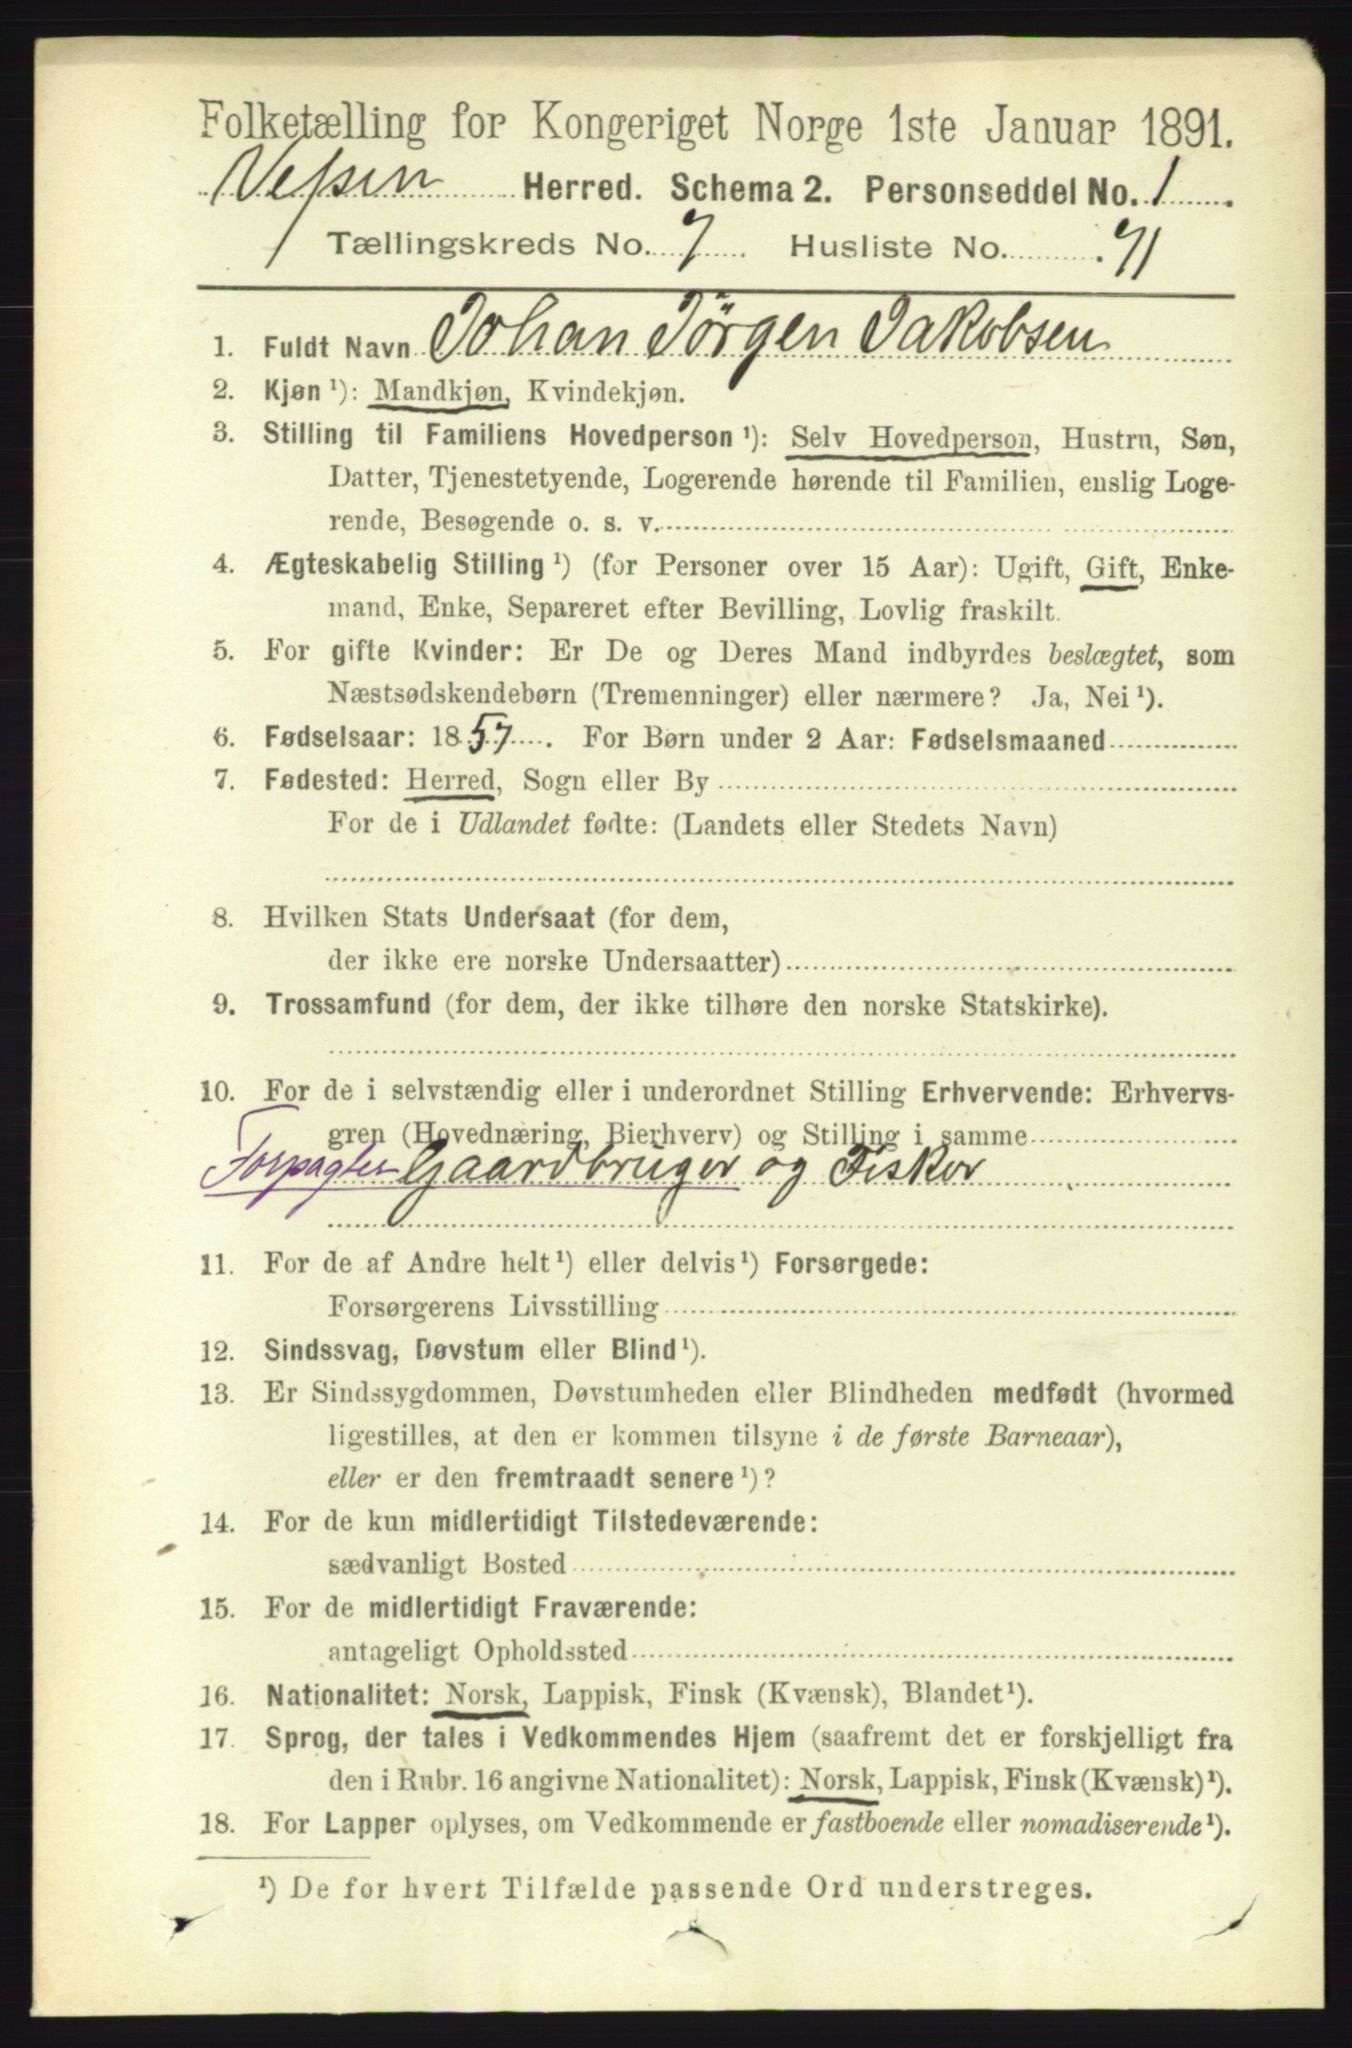 Folketælling for Kongeriget Norge 1ste Januar 1891.
Vefsen Herred. Schema 2. Personseddel No. 1.
Tællingskreds No. 7. Husliste No. 71
1. Fuldt Navn Johan Jörgen Jakobsen
2. Kjøn ¹): Mandkjøn, Kvindekjøn.
3. Stilling til Familiens Hovedperson ¹): Selv Hovedperson, Hustru, Søn,
Datter, Tjenestetyende, Logerende hørende til Familien, enslig Loge-
rende, Besøgende o. s. v.
4. Ægteskabelig Stilling ¹) (for Personer over 15 Aar): Ugift, Gift, Enke-
mand, Enke, Separeret efter Bevilling, Lovlig fraskilt.
5. For gifte Kvinder: Er De og Deres Mand indbyrdes beslægtet, som
Næstsødskendebørn (Tremenninger) eller nærmere? Ja, Nei ¹).
6. Fødselsaar: 1857. For Børn under 2 Aar: Fødselsmaaned
7. Fødested: Herred, Sogn eller By
For de i Udlandet fødte: (Landets eller Stedets Navn)
8. Hvilken Stats Undersaat (for dem,
der ikke ere norske Undersaatter)
9. Trossamfund (for dem, der ikke tilhøre den norske Statskirke).
10. For de i selvstændig eller i underordnet Stilling Erhvervende: Erhvervs-
gren (Hovednæring, Bierhverv) og Stilling i samme
Forpagter Gaardbruger og Fisker
11. For de af Andre helt ¹) eller delvis ¹) Forsørgede:
Forsørgerens Livsstilling
12. Sindssvag, Døvstum eller Blind ¹).
13. Er Sindssygdommen, Døvstumheden eller Blindheden medfødt (hvormed
ligestilles, at den er kommen tilsyne i de første Barneaar),
eller er den fremtraadt senere ¹)?
14. For de kun midlertidigt Tilstedeværende:
sædvanligt Bosted
15. For de midlertidigt Fraværende:
antageligt Opholdssted
16. Nationalitet: Norsk, Lappisk, Finsk (Kvænsk), Blandet ¹).
17. Sprog, der tales i Vedkommendes Hjem (saafremt det er forskjelligt fra
den i Rubr. 16 angivne Nationalitet): Norsk, Lappisk, Finsk (Kvænsk) ¹).
18. For Lapper oplyses, om Vedkommende er fastboende eller nomadiserende ¹).
¹) De for hvert Tilfælde passende Ord understreges.